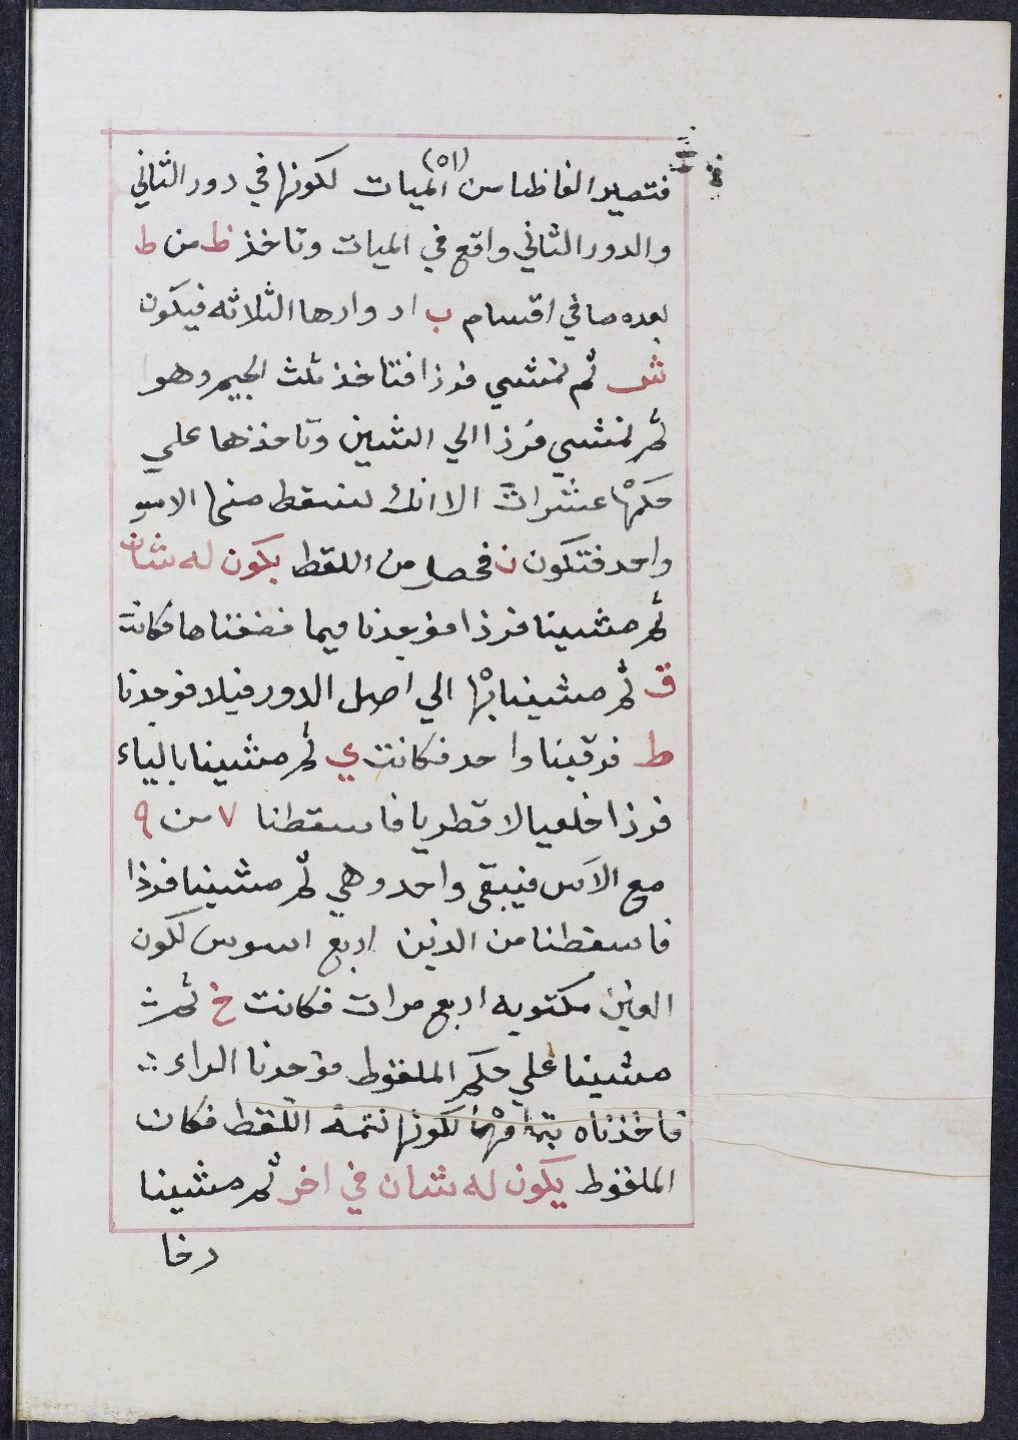 (٥١)
فتصير الفا ظا من الميات لكونها في دور الثاني
والدور الثاني واقع في الميات وتاخذ ظ من ط
بعده صافي اقسام ب ادوارها الثلاثه فيكون
ش ثم نمشي فرذا فتاخذ ثلث الجيم وهوا
ثم نمشي فرذا الي الشين وتاخذها علي
حكمها عشرات الا انك تسقط منها الاس
واحد فتكون ن فحصل من اللقط يكون له شان
ثم مشينا فرذا فوجدنا فيما ضعفناها فكانت
ق ثم مشينا بها الي اصل الدور فيلا فوجدنا
ط فرقينا واحد فكانت ي ثم مشينا بالياء
فرذا فاسقطنا ٧ من ٩
مع الاس فيبقي واحد وهي ثم مشينا فرذا
فاسقطنا من اربع اسوس لكون
العين مكتوبه اربع مرات فكانت خ ثم
مشينا علي حكم الملفوظ فوجدنا الراء
فاخذناه لكونها تتمة اللقط فكان
الملفوظ يكون له شان في اخر ثم مشينا